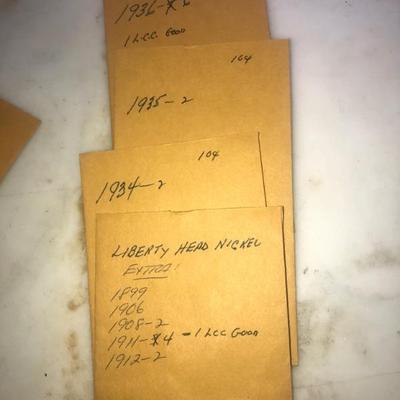 1936- 6
1 L.C.C. GOOD
104
1935-2
104
1934-2
LIBERTY HEAD NICKEL
EXTRAS:
1899
1906
1908-2
1911- 4 - 1 LCC GOOD
1912-2